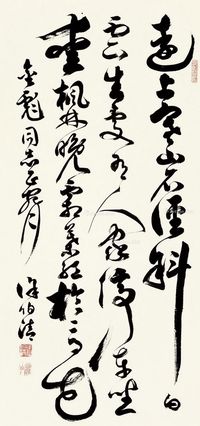 遠上寒山石徑斜白
云生處有人家停車坐
愛楓林晚霜葉紅於二月花
金彪同志正
徐伯清